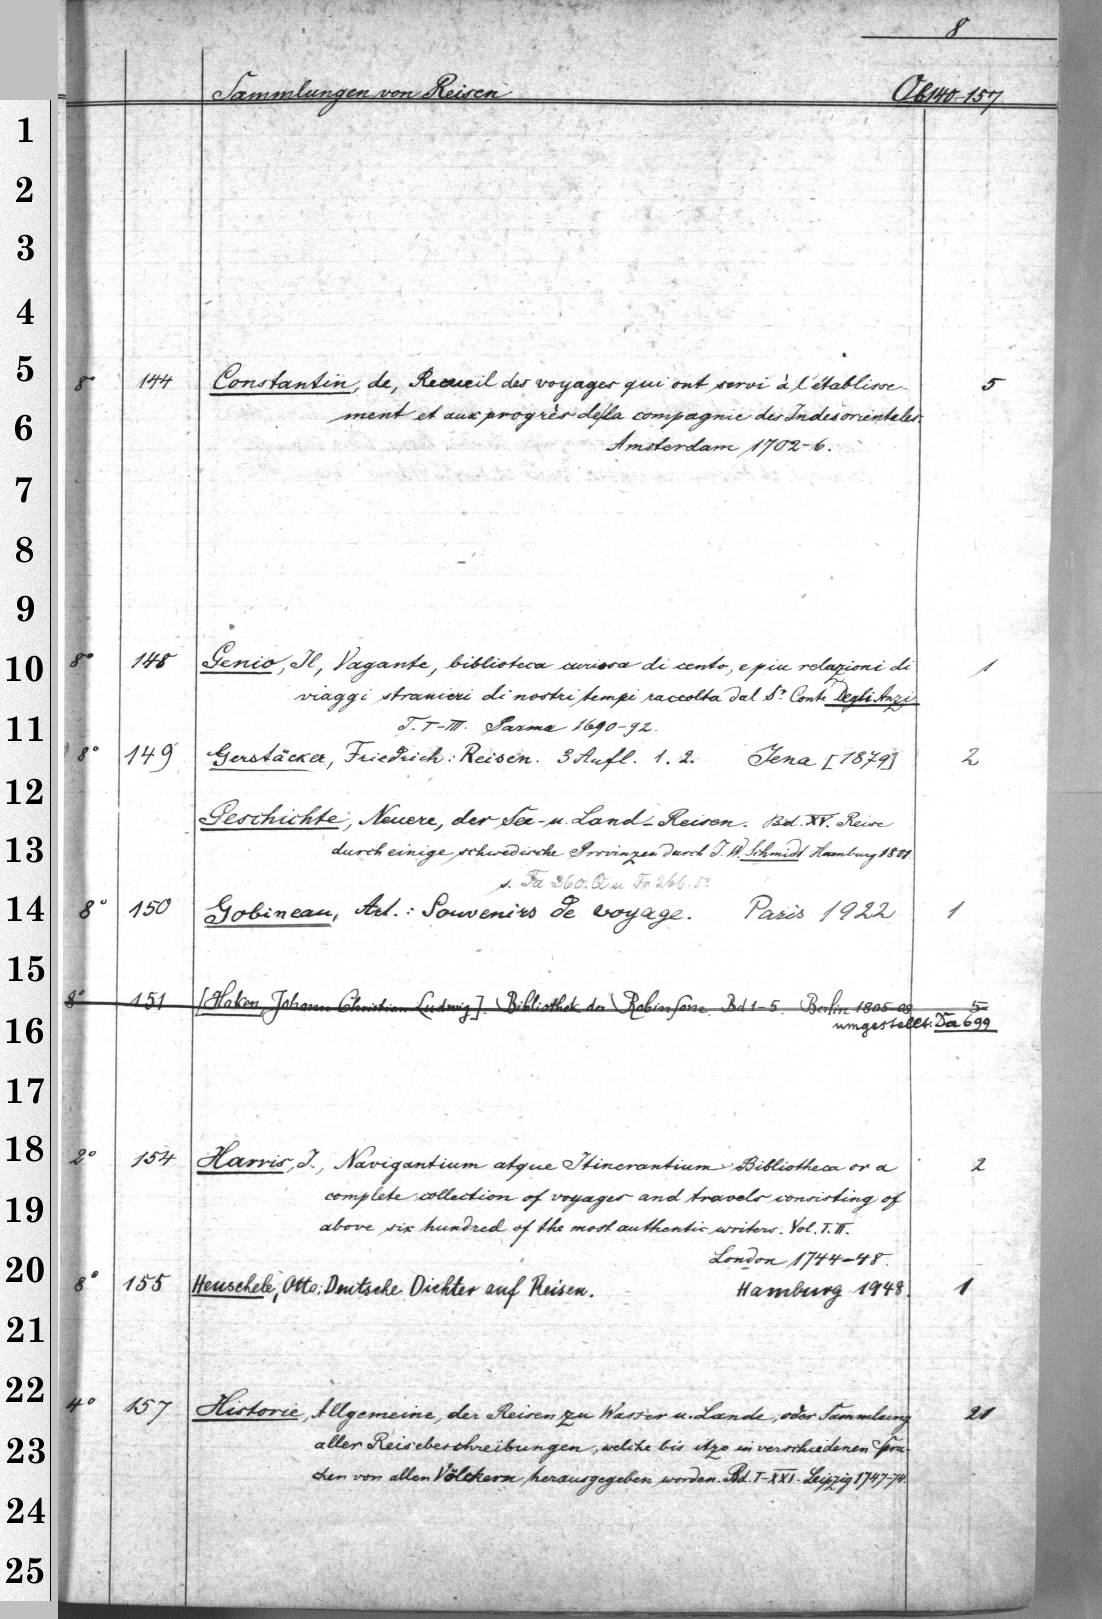 8
Sammlungen von Reisen Ob 140-157
1
2
3
4
5
8° 144 Constantin, de, Recueil des voyages qui ont servi à l'établisse- 5
6
ment et aux progrès de la compagnie des Indes orientales.
Amsterdam 1702-6.
7
8
9
10
8° 148 Genio, Il, Vagante, biblioteca curiosa di cento, e piu relazioni di 1
viaggi stranieri di nostri tempi raccolta dal Sr. Conte Degli Anzi
11
T. I-III. Parma 1690-92.
8° 149 Gerstäcker, Friedrich: Reisen. 3 Aufl. 1. 2. Jena [1879] 2
12
Geschichte, Neuere, der See- u. Land-Reisen. Bd. XV. Reise
13
durch einige schwedische Provinzen durch J. W. Schmidt Hamburg 1801
s. Fa 360. u Fr 266.
14
8° 150 Gobineau, Art.: Souvenirs de voyage. Paris 1922 1
15
8° 151 [Haken, Johann Christian Ludwig]. Bibliothek der Robinsone. Bd 1-5. Berlin 1805-08 5
16
umgestellt: Da 699
17
18
2° 154 Harris, J., Navigantium atque Itinerantium Bibliotheca or a 2
19
complete collection of voyages and travels consisting of
above six hundred of the most authentic writers. Vol. I. II.
20
London 1744-48.
8° 155 Heuschele, Otto: Deutsche Dichter auf Reisen. Hamburg 1948. 1
21
22
4° 157 Historie, Allgemeine, der Reisen zu Wasser u. Lande, oder Sammlung 21
23
aller Reisebeschreibungen, welche bis itzo in verschiedenen Spra-
chen von allen Völckern herausgegeben worden. Bd. I-XXI. Leipzig 1747-74.
24
25